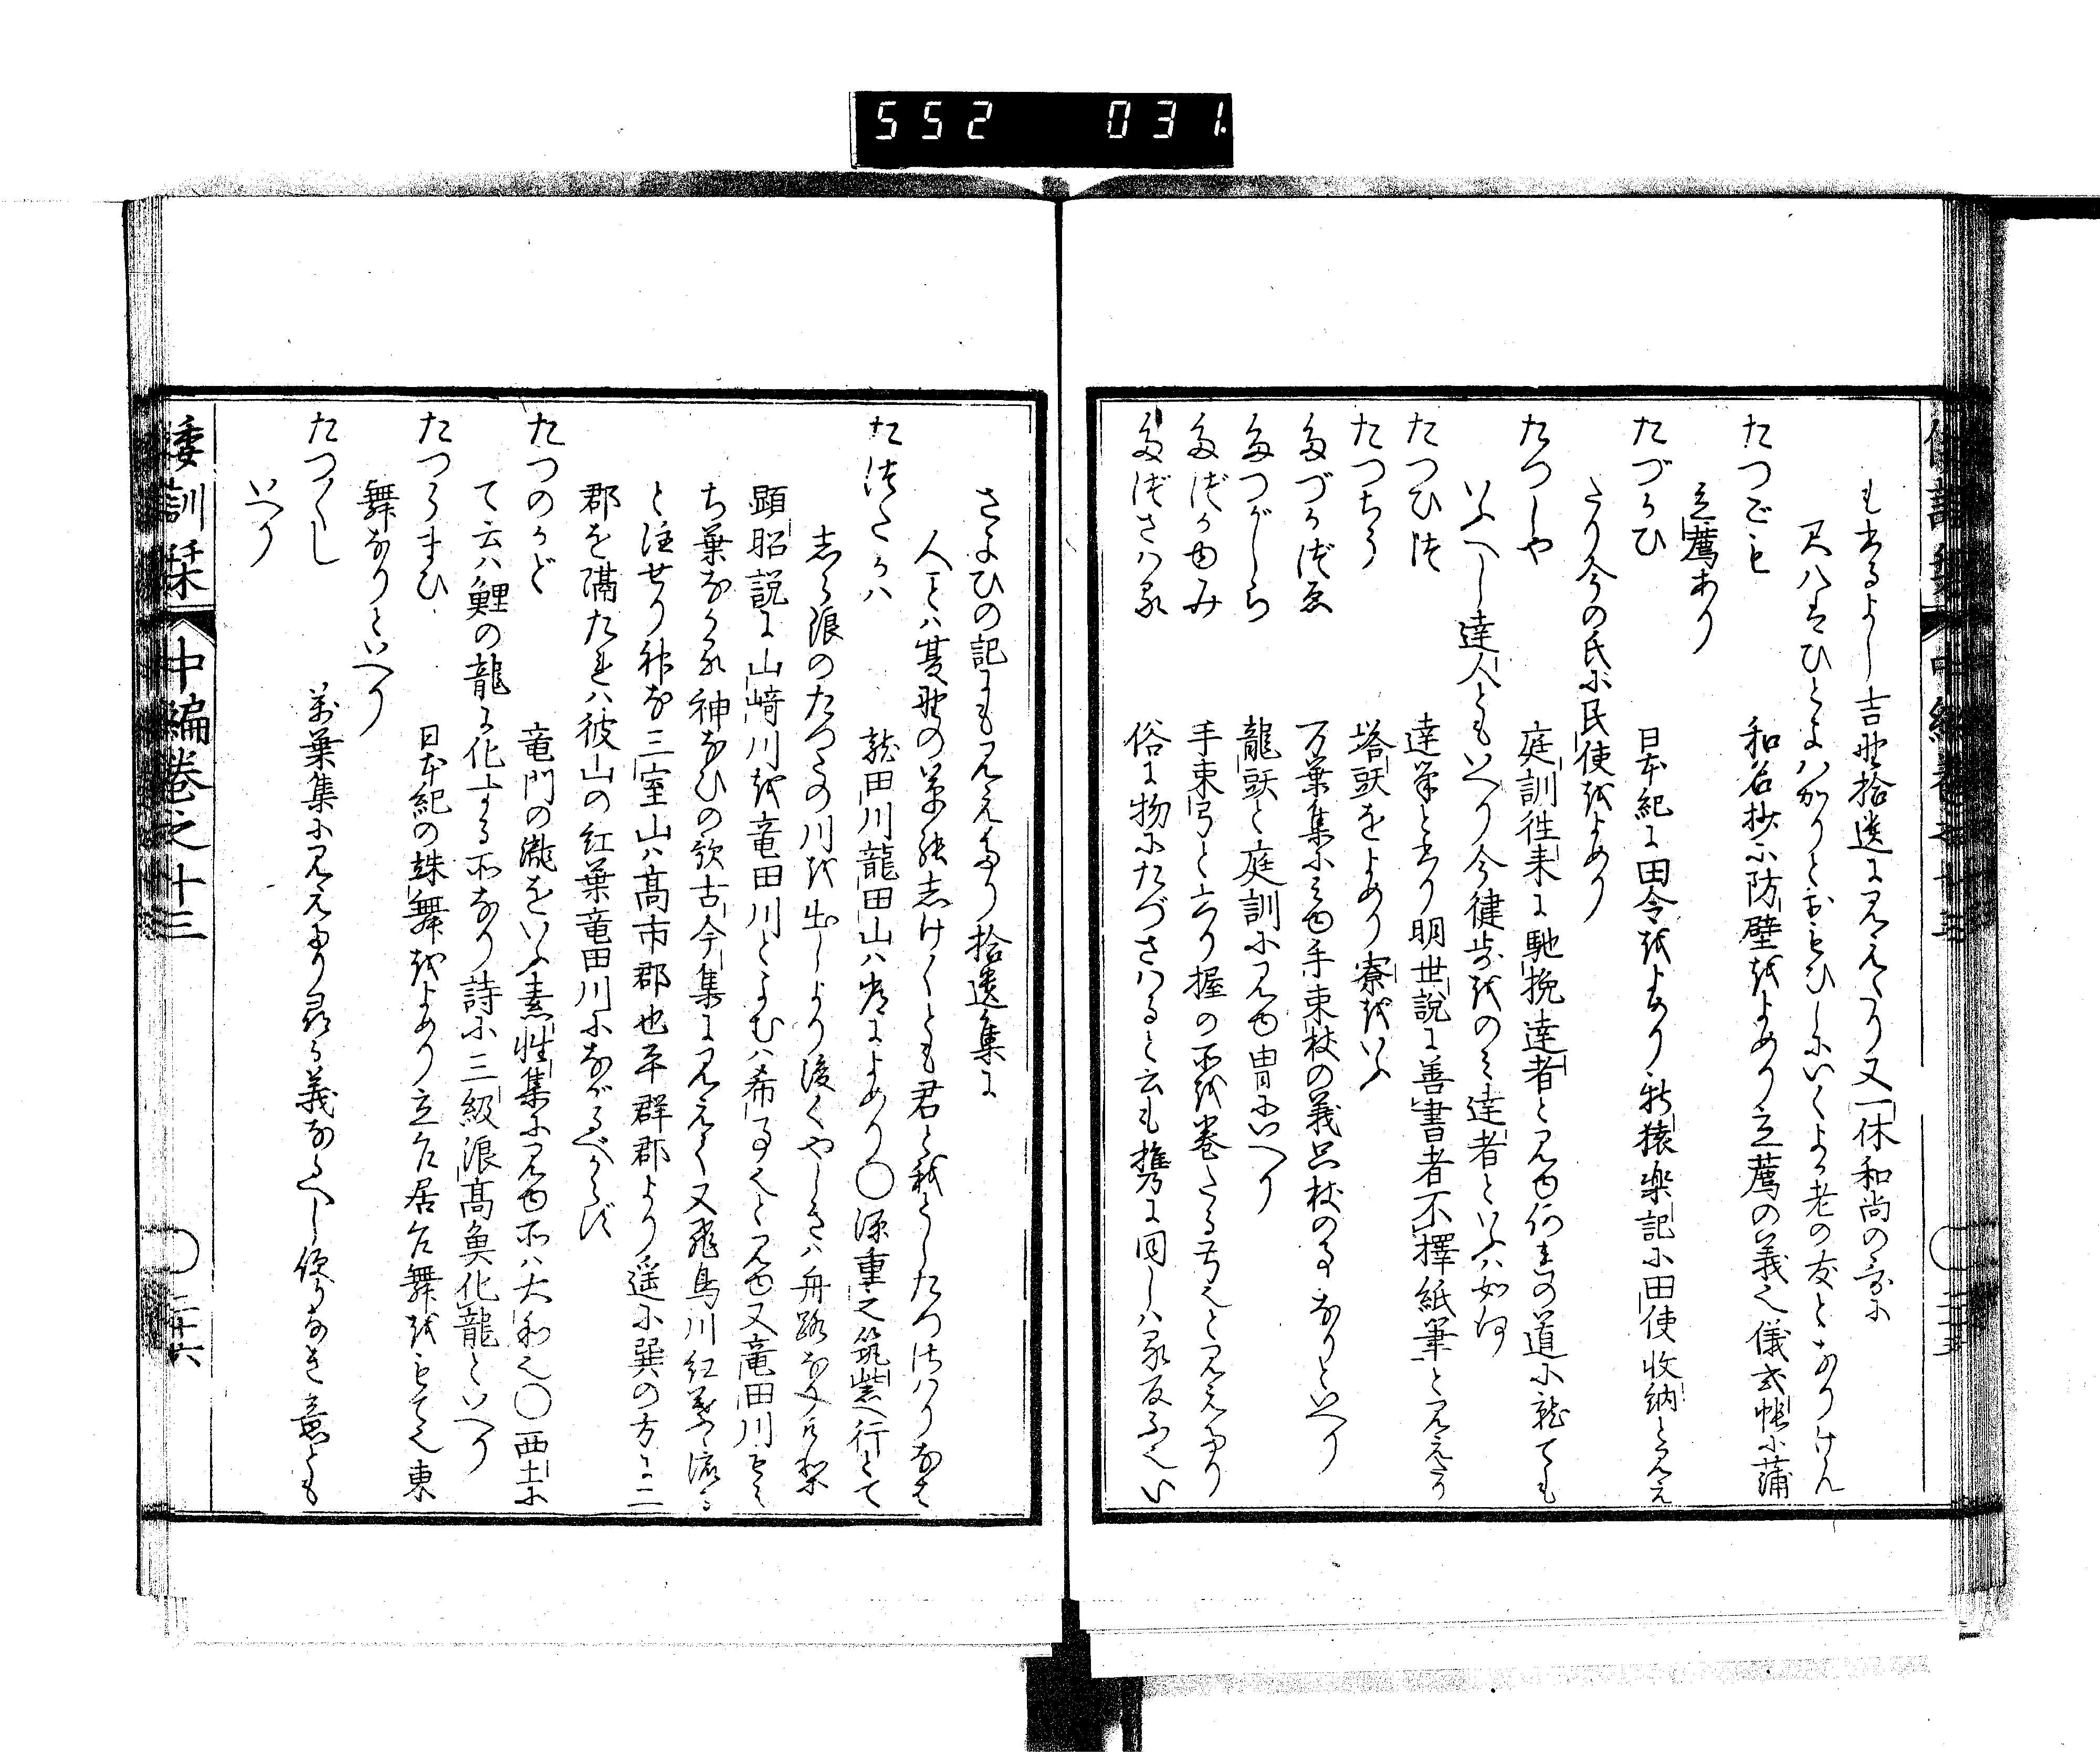 552 031
もあるよし吉野拾遺に見えたり又一休和尚の哥に
尺八はひとよはかりとおもひしにいくよか老の友となりけん
たつごも 和名抄に防壁をよめり立薦の義也儀式帳に蒲
立薦あり
たづかひ 日本紀に田令をよめり新猿楽記に田使收納と見え
たり今の氏に民使をよめり
たつしや 庭訓往来に馳挽達者と見ゆ何れの道に就ても
いふへし達人ともいへり今健歩をのみ達者といふは如何
たつひつ 達筆とかけり明世説に善書者不擇紙筆と見えたり
たつちう 塔頭をよめり寮をいふ
たづかづゑ 万葉集にみゆ手束杖の義只杖の事なりといへり
たつがしら 龍頭と庭訓に見ゆ冑にいへり
たづかゆみ 手束弓と云り握の所を巻たる弓也と見えたり
たづさはる 俗に物にたづさはると云も携に同しはる反ふ也い
さよひの記にも見えたり拾遺集に
人ことは夏野の草のしけくとも君と我としたつさはりなは
たつたかは 龍田川龍田山は常によめり○源重之筑紫へ行とて
しら浪のたつたの川を出しより後くやしきは舟路なりけり
顕昭説に山崎川を竜田川とよむは希事也と見ゆ又竜田川もみ
ち葉なかる神なひの歌古今集に見えて又飛鳥川紅葉流る
と注せり神なひ三室山は高市郡也平群郡より遥に巽の方に二
郡を隔たれは彼山の紅葉竜田川になかるべからず
たつのかど 竜門の瀧をいふ素性集に見ゆ所は大和也○西土に
て云は鯉の龍に化する所なり詩に三級浪高魚化龍といへり
たつゝまひ 日本紀の殊舞をよめり立た居た舞をもて也東
舞なりといへり
たつくし 萬葉集に見えたり尋る義なるへし便りなき意とも
いへり
倭訓栞 中編巻之十三 ○二十六